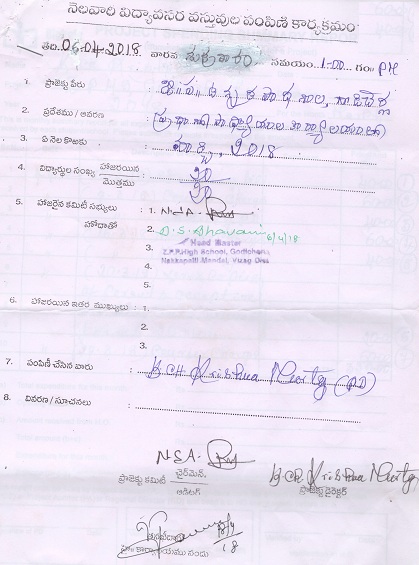 నెలవారి విద్యావసర వస్తువుల పంపిణి కార్యక్రమం
తేది. 06-04-2018 వారము శుక్రవారం సమయం 1-00 గం॥ PM
1. ప్రాజెక్టు పేరు : జి॥ప॥ ఉన్నత పాఠశాల, గొడిచెర్ల
2. ప్రదేశము / ఆవరణ : (ప్రధానోపాధ్యాయుల కార్యాలయం)
3. ఏ నెల కొఱకు : మార్చి, 2018
4. విద్యార్థుల సంఖ్య హాజరయిన
మొత్తము
5. హాజరైన కమిటీ సభ్యులు : 1. N.S.A.
హోదాతో 2. D.S. Bhavani 6/4/18
3. Head Master
Z.P.P.High School, Godicharla
4. Nakkapalli Mandal, Vizag Dist.
5.
6. హాజరయిన ఇతర ముఖ్యులు : 1.
2.
3.
7. పంపిణీ చేసిన వారు : K.CH Krishna Murty (PD)
8. వివరణ / సూచనలు :
N.S.A.
ప్రాజెక్టు కమిటీ ఛైర్మెన్. K CH Krishna Murty
ఆడిటగ్ ప్రాజెక్టు డైరెక్టర్
18